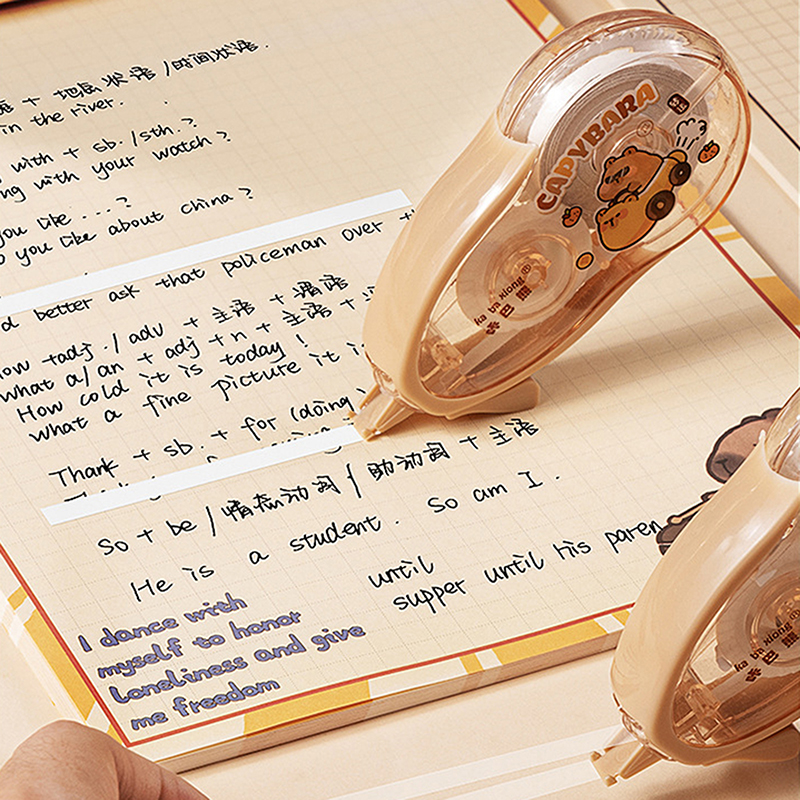 + 地点状语/时间状语.
in the river.
with + sb./sth.?
ng with your watch?
you like ...?
o you like about china?
d better ask that policeman over t
How +adj./adv + 主语 + 谓语
what a/an + adj + n + 主语 +
How cold it is today!
what a fine picture it i
Thank + sb. + for (doing)
So + be / 情态动词 / 助动词 + 主语
He is a student. So am I.
until
supper until his paren
I dance with
myself to honor
loneliness and give
me freedom
CAPYBARA
ka ba xiong
咔巴熊
ka ba xiong
咔巴熊